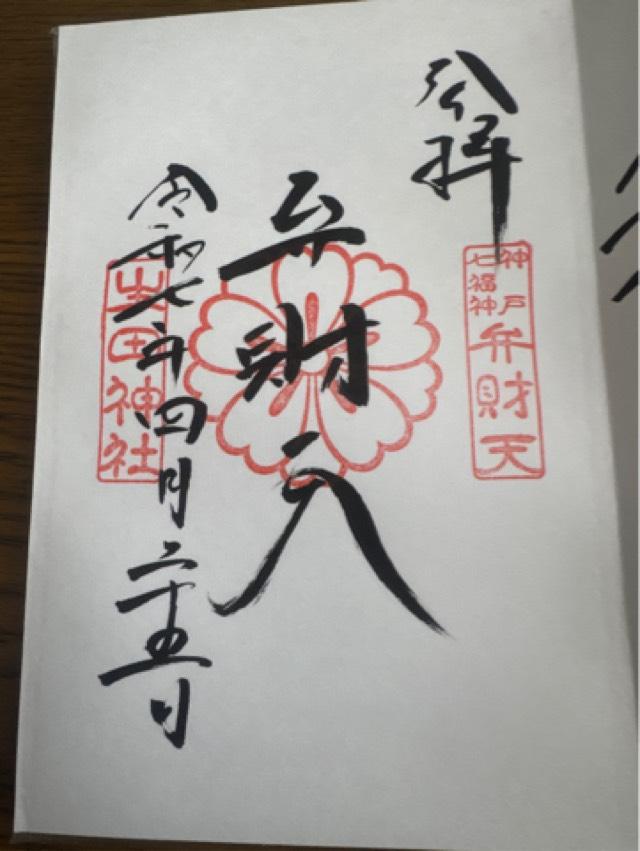 奉拝
神戸
七福神
弁財天
弁財天
令和七年四月二十五日
生田神社